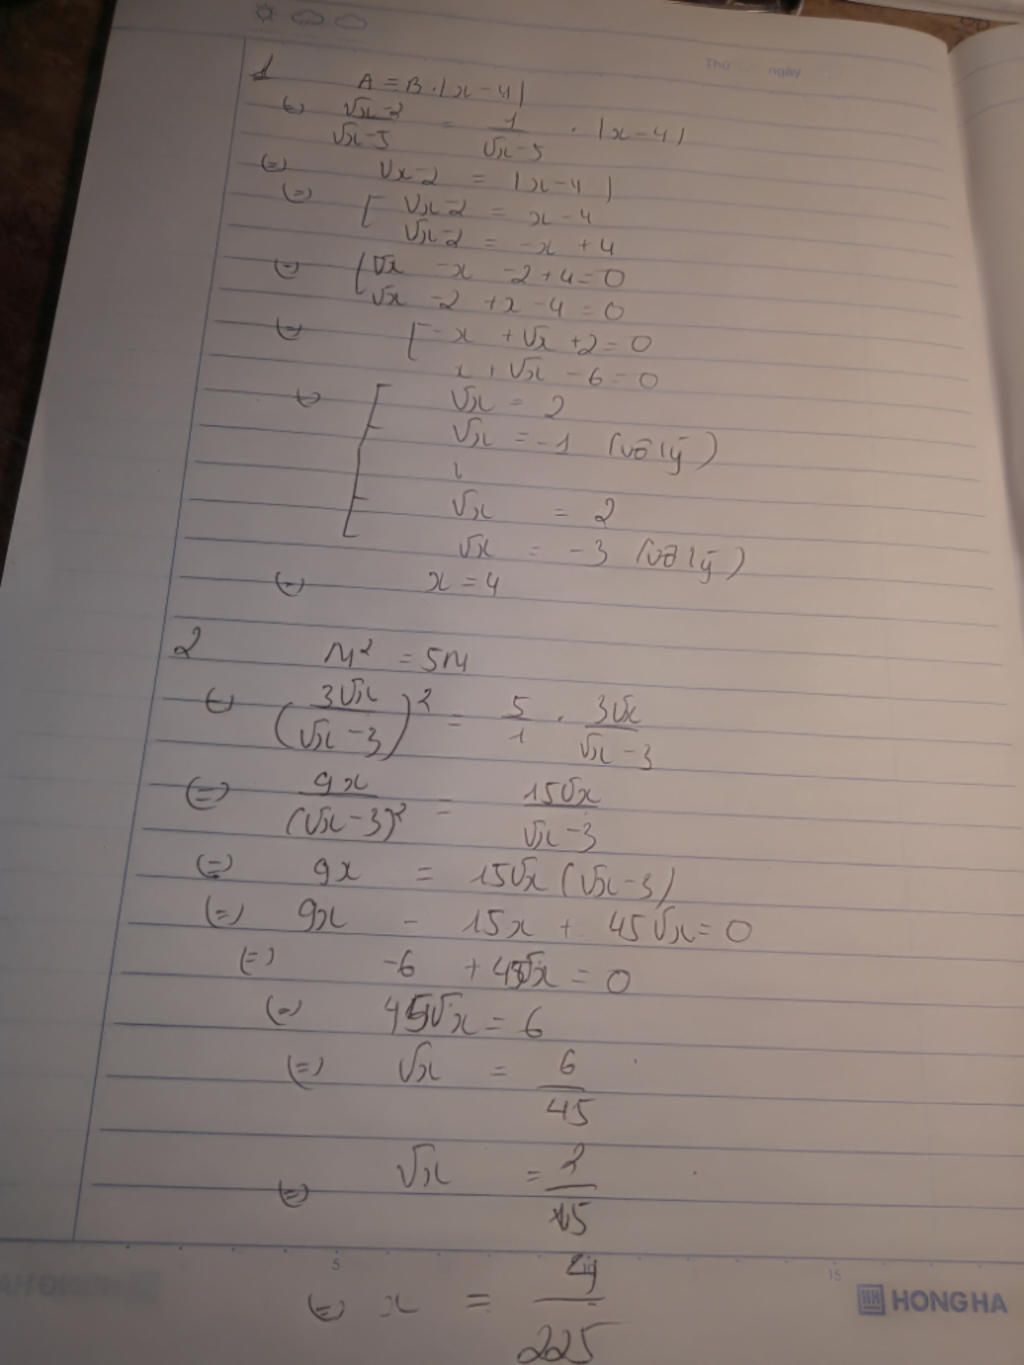 Thứ ngày
1 A = B.|x-4|
(=) √x-2/√x-5 = 1/√x-5 . |x-4|
(=) √x-2 = |x-4|
(=) [ √x-2 = x-4
√x-2 = -x+4
(=) [ √x -x -2+4=0
√x -2 +x-4 = 0
(=) [ -x +√x +2=0
x + √x - 6 = 0
(=) [ √x = 2
√x = -1 (vô lý)
√x = 2
√x = -3 (vô lý)
(=) x = 4
2 M² = 5M
(=) (3√x/√x-3)² = 5/1 . 3√x/√x-3
(=) 9x/(√x-3)² = 15√x/√x-3
(=) 9x = 15√x(√x-3)
(=) 9x - 15x + 45√x = 0
(=) -6 + 45√x = 0
(=) 45√x = 6
(=) √x = 6/45
(=) √x = 2/15
5 15
HONG HA
(=) x = 4/225